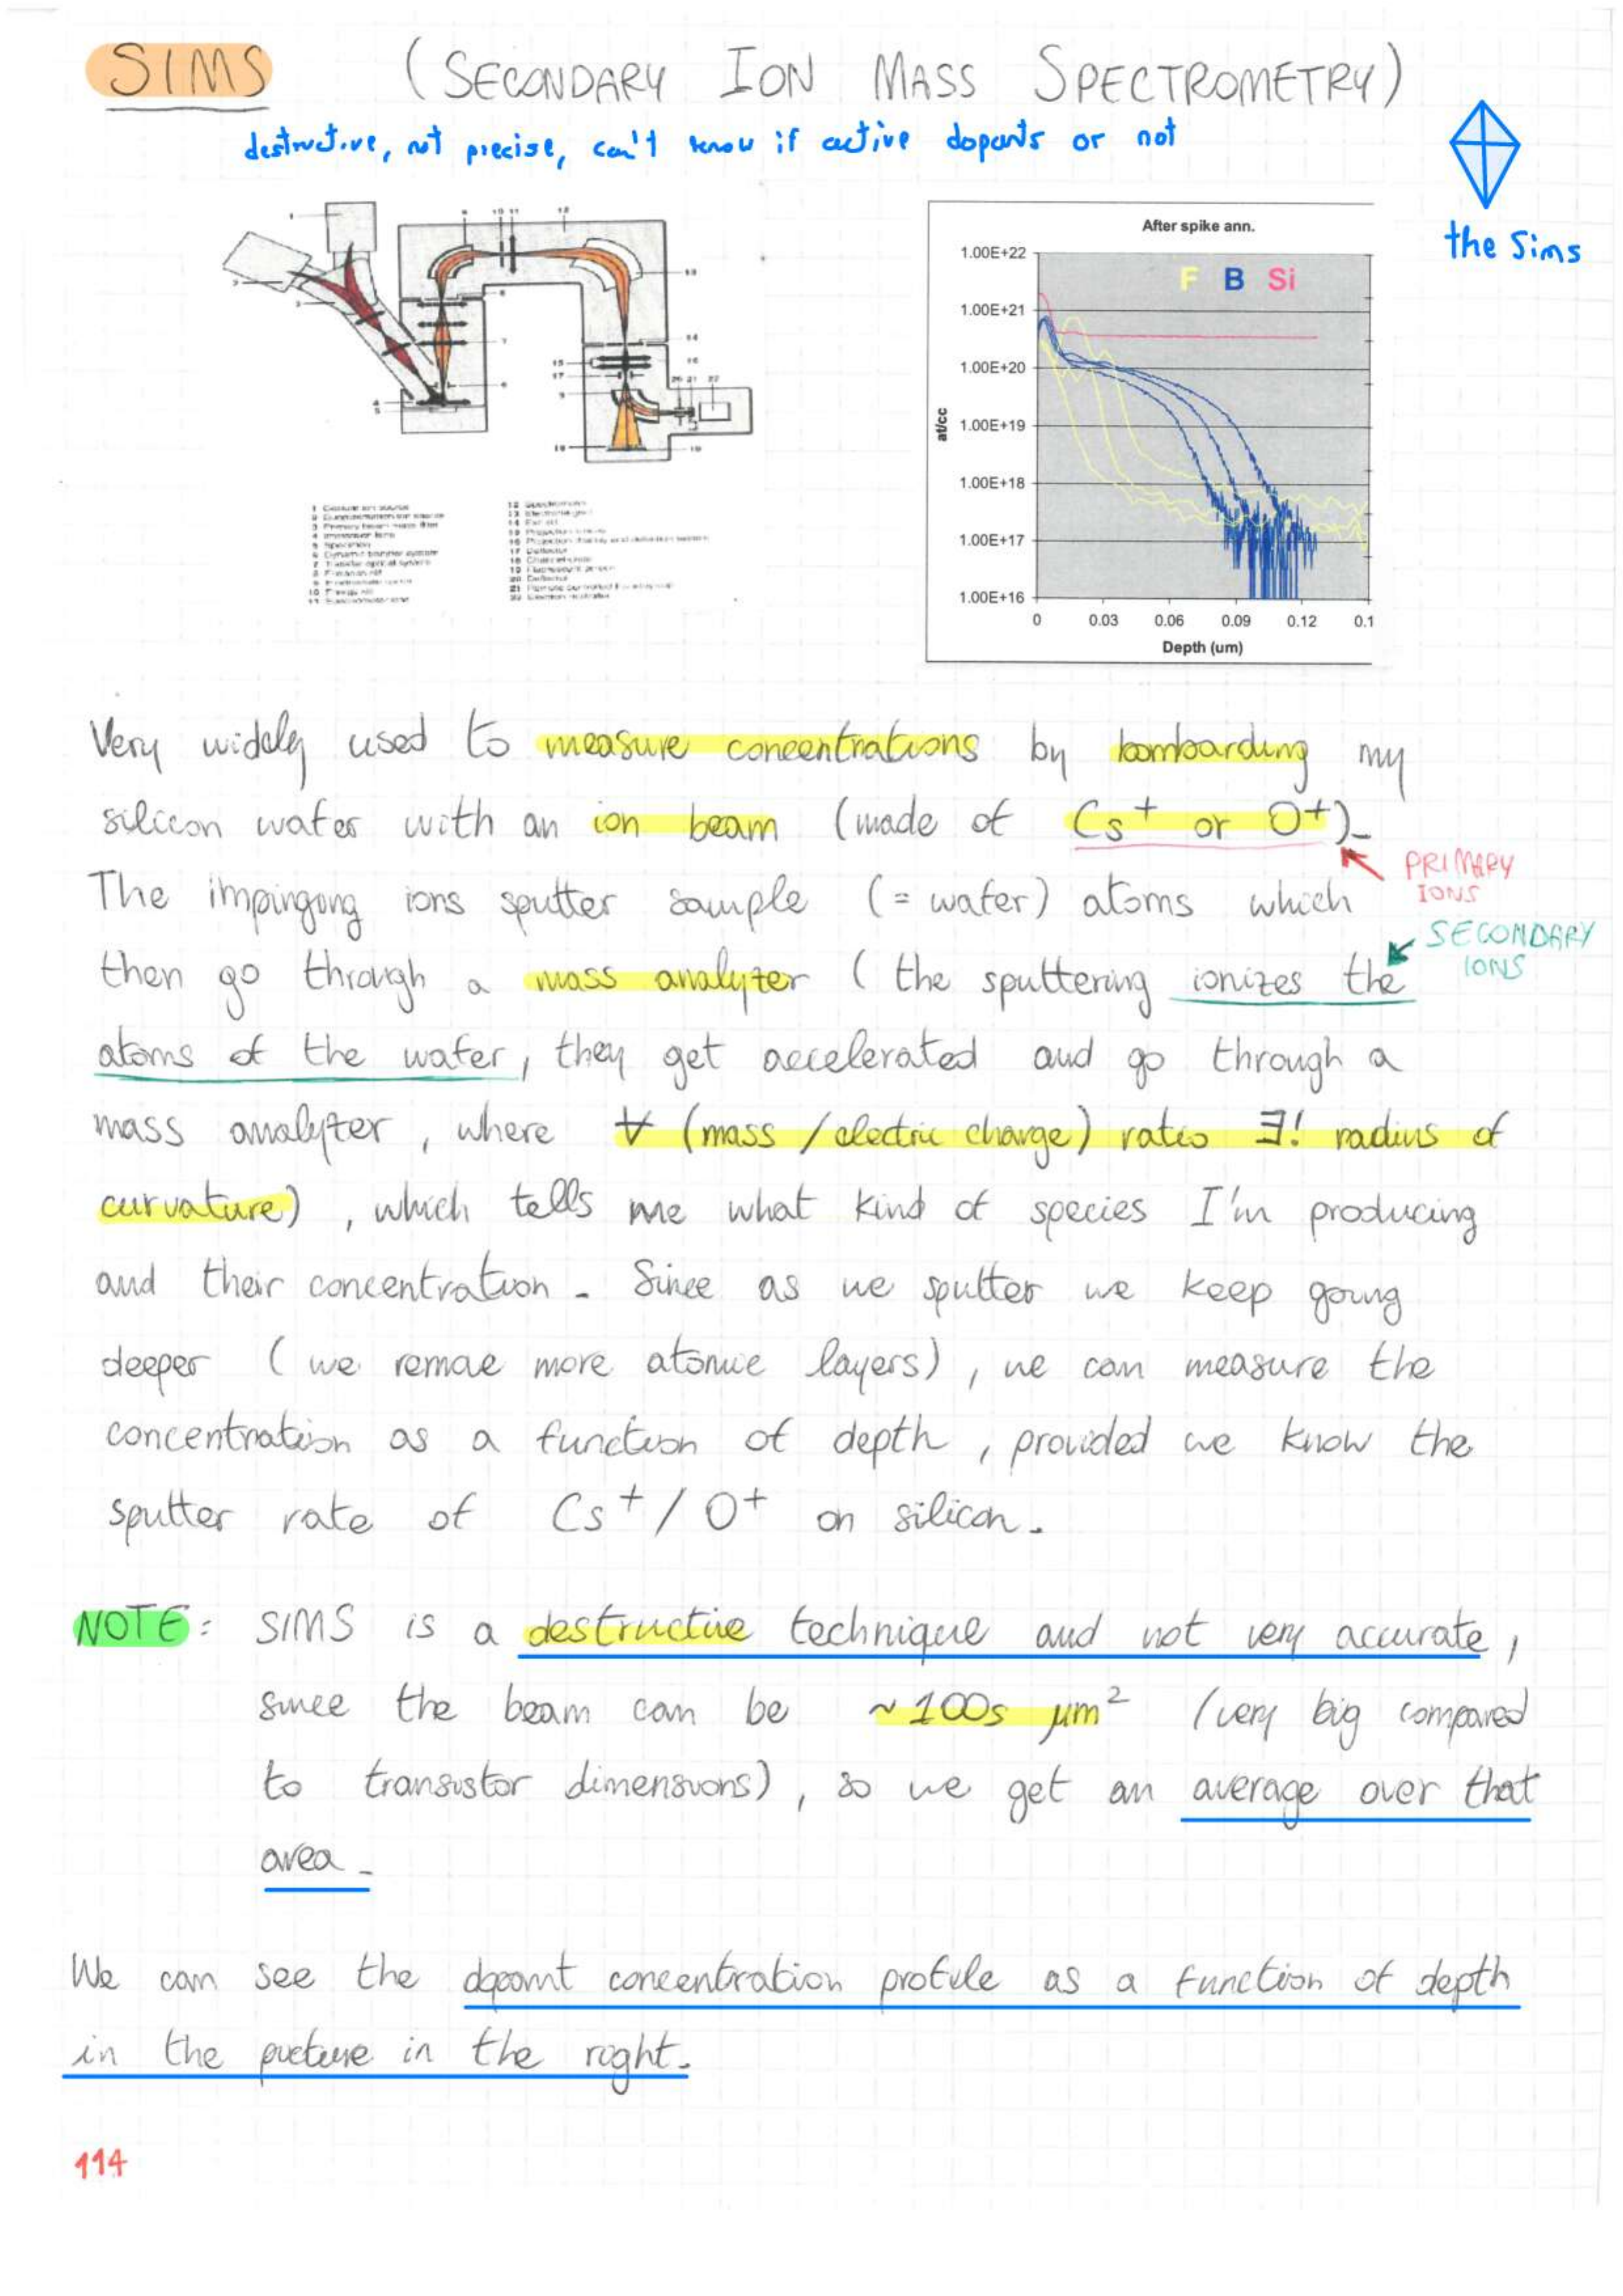 SIMS (SECONDARY ION MASS SPECTROMETRY)
destructive, not precise, can't know if active dopants or not
the Sims
After spike ann.
F B Si
1.00E+22
1.00E+21
1.00E+20
1.00E+19
1.00E+18
1.00E+17
1.00E+16
at/cc
0 0.03 0.06 0.09 0.12 0.1
Depth (um)
Very widely used to measure concentrations by bombarding my
silicon wafer with an ion beam (made of Cs⁺ or O⁺).
PRIMARY
IONS
The impinging ions sputter sample (= wafer) atoms which
SECONDARY
IONS
then go through a mass analyzer (the sputtering ionizes the
atoms of the wafer, they get accelerated and go through a
mass analyzer, where ∀ (mass / electric charge) ratio ∃! radius of
curvature), which tells me what kind of species I'm producing
and their concentration. Since as we sputter we keep going
deeper (we remove more atomic layers), we can measure the
concentration as a function of depth, provided we know the
sputter rate of Cs⁺/O⁺ on silicon.
NOTE: SIMS is a destructive technique and not very accurate,
since the beam can be ~100s μm² (very big compared
to transistor dimensions), so we get an average over that
area.
We can see the dopant concentration profile as a function of depth
in the picture in the right.
114